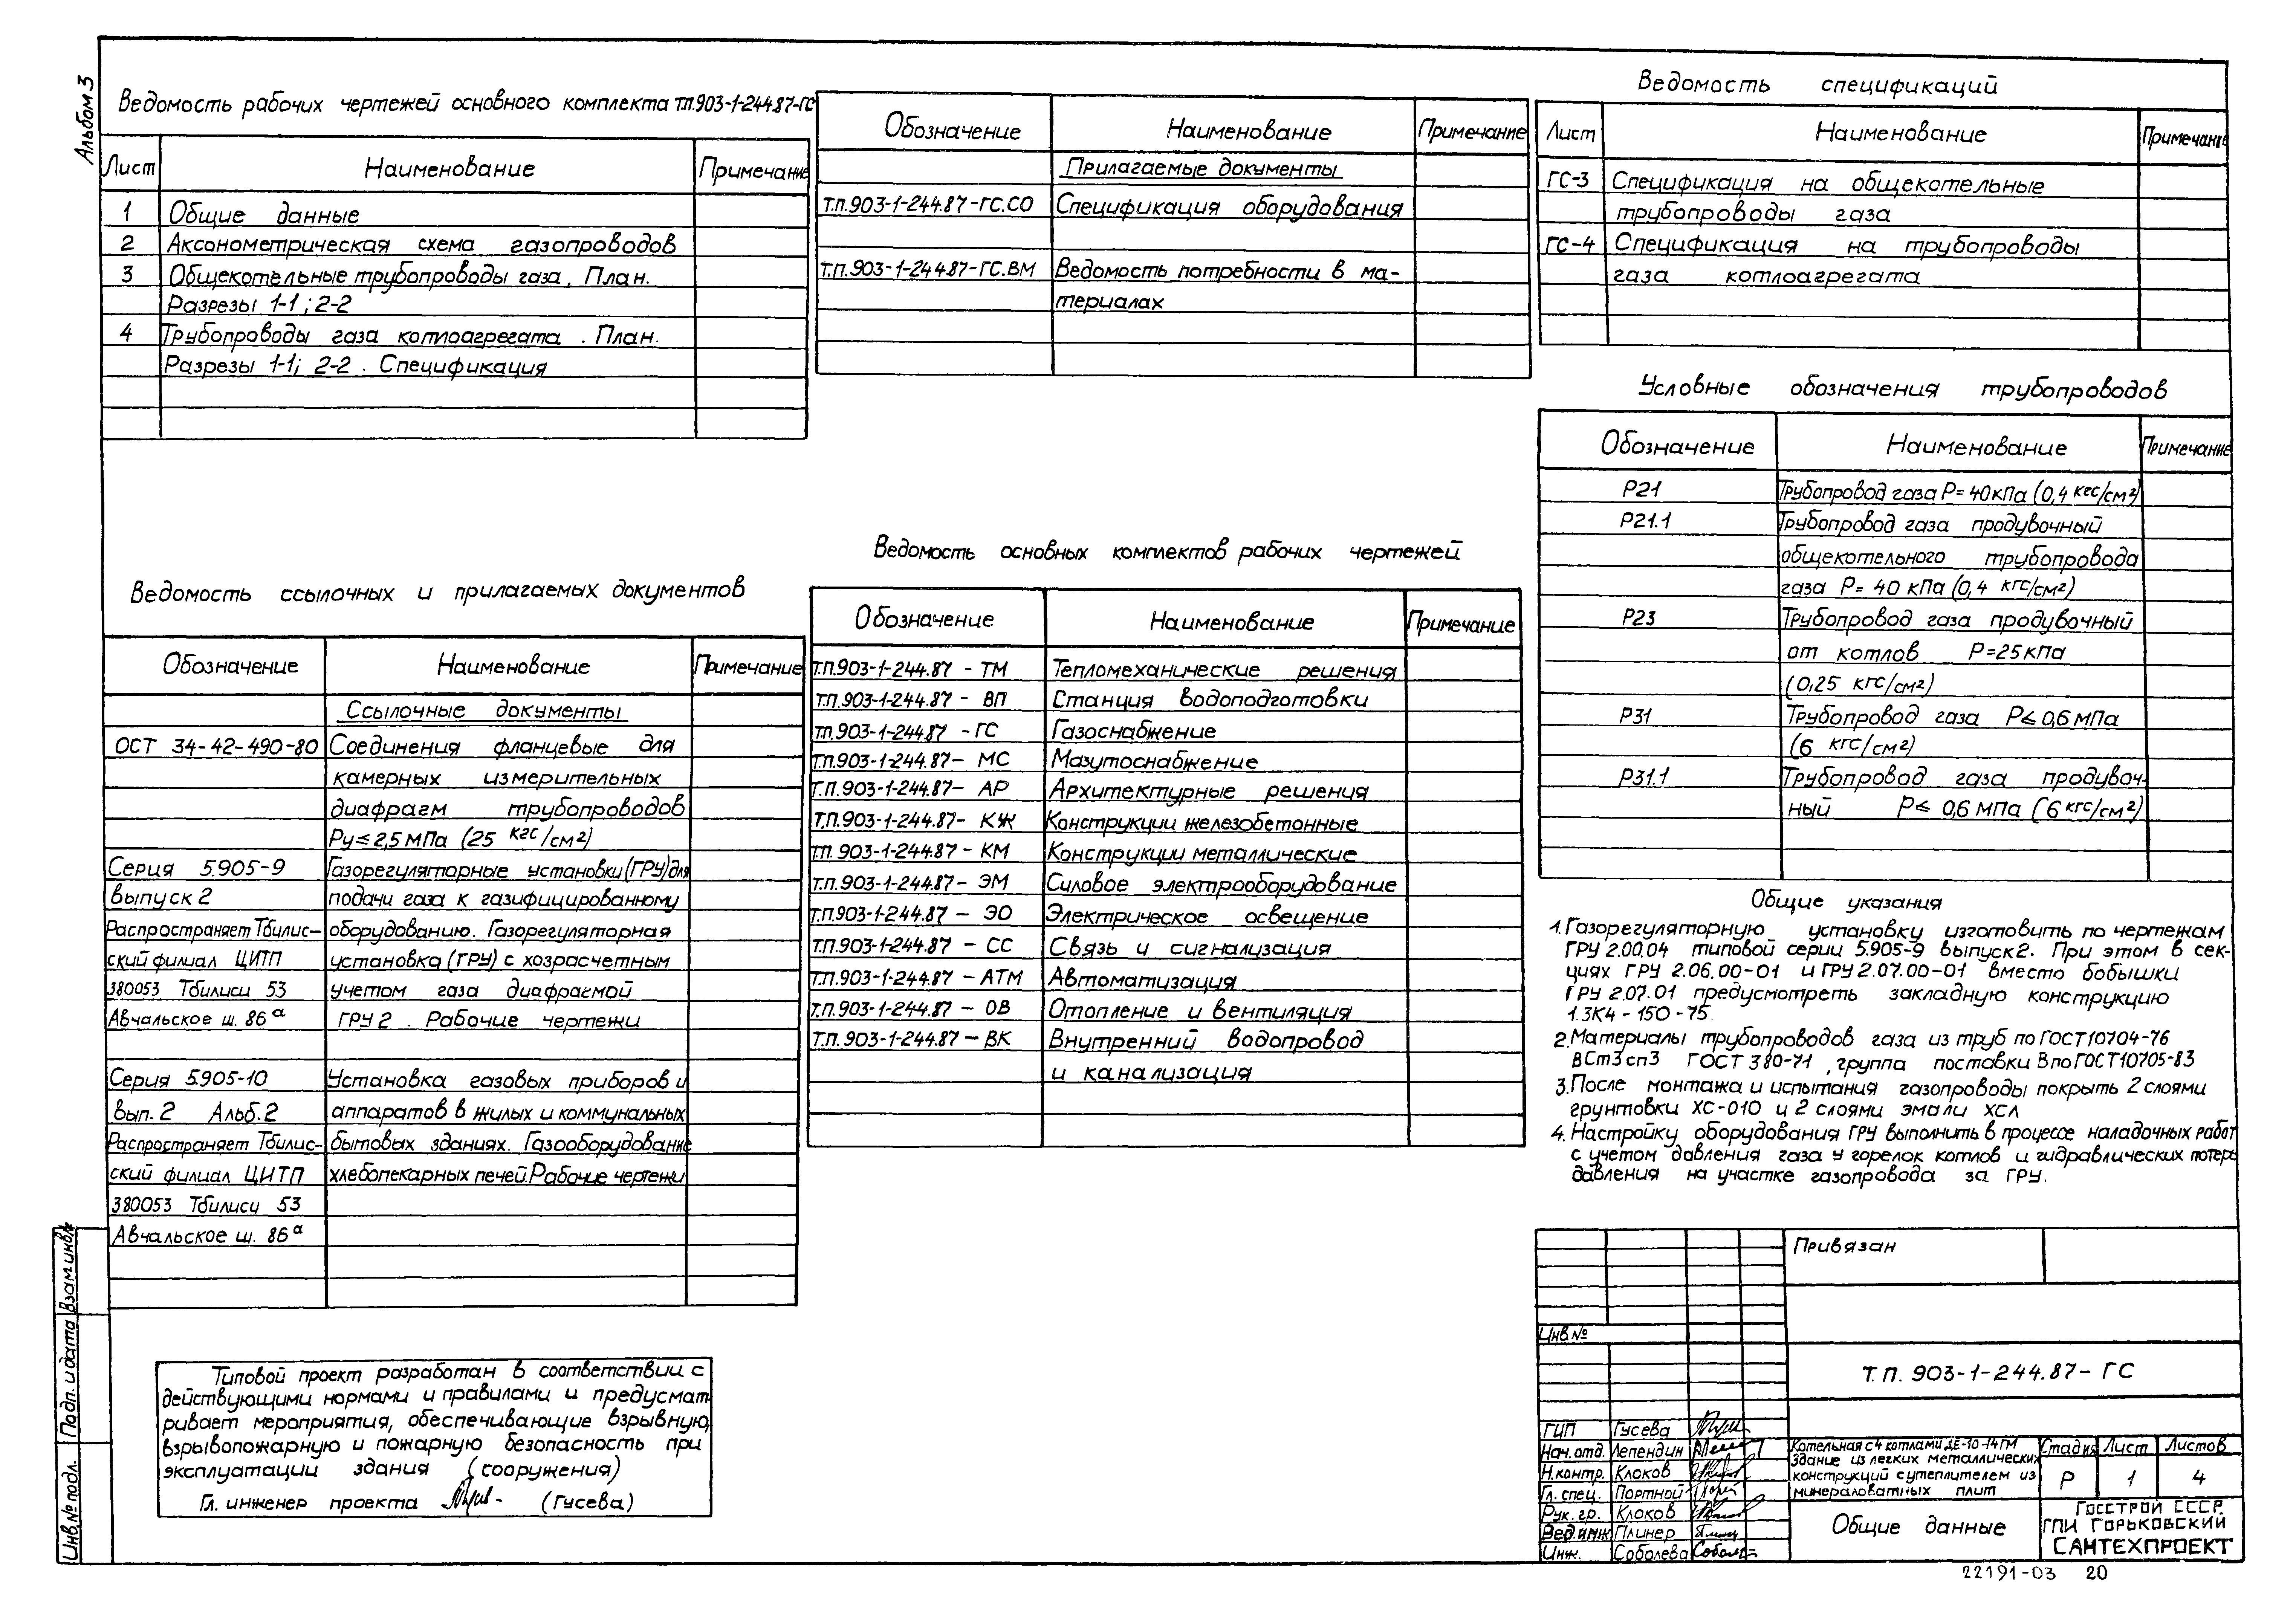 Альбом 3
Ведомость рабочих чертежей основного комплекта т.п.903-1-244.87-ГС
Лист Наименование Примечание
1 Общие данные
2 Аксонометрическая схема газопроводов
3 Общекотельные трубопроводы газа. План.
Разрезы 1-1; 2-2
4 Трубопроводы газа котлоагрегата. План.
Разрезы 1-1; 2-2. Спецификация
Ведомость ссылочных и прилагаемых документов
Обозначение Наименование Примечание
Ссылочные документы
ОСТ 34-42-490-80 Соединения фланцевые для
камерных измерительных
диафрагм трубопроводов
Ру≤2,5 МПа (25 кгс/см²)
Серия 5.905-9 Газорегуляторные установки (ГРУ) для
выпуск 2 подачи газа к газифицированному
Распространяет Тбилис- оборудованию. Газорегуляторная
ский филиал ЦИТП установка (ГРУ) с хозрасчетным
380053 Тбилиси 53 учетом газа диафрагмой
Авчальское ш. 86а ГРУ 2. Рабочие чертежи
Серия 5.905-10 Установка газовых приборов и
Вып. 2 Альб. 2 аппаратов в жилых и коммунальных
Распространяет Тбилис- бытовых зданиях. Газооборудование
ский филиал ЦИТП хлебопекарных печей. Рабочие чертежи
380053 Тбилиси 53
Авчальское ш. 86а
Типовой проект разработан в соответствии с
действующими нормами и правилами и предусмат-
ривает мероприятия, обеспечивающие взрывную,
взрывопожарную и пожарную безопасность при
эксплуатации здания (сооружения)
Гл. инженер проекта (Гусева)
Обозначение Наименование Примечание
Прилагаемые документы
Т.П.903-1-244.87-ГС.СО Спецификация оборудования
Т.П.903-1-24487-ГС.ВМ Ведомость потребности в ма-
териалах
Ведомость основных комплектов рабочих чертежей
Обозначение Наименование Примечание
Т.П.903-1-244.87 - ТМ Тепломеханические решения
т.п.903-1-244.87 - ВП Станция водоподготовки
т.п.903-1-244.87 - ГС Газоснабжение
т.п.903-1-244.87 - МС Мазутоснабжение
Т.П.903-1-244.87 - АР Архитектурные решения
Т.П.903-1-244.87 - КЖ Конструкции железобетонные
т.п.903-1-244.87 - КМ Конструкции металлические
Т.П.903-1-244.87 - ЭМ Силовое электрооборудование
Т.П.903-1-244.87 - ЭО Электрическое освещение
Т.П.903-1-244.87 - СС Связь и сигнализация
Т.П.903-1-244.87 - АТМ Автоматизация
Т.П.903-1-244.87 - ОВ Отопление и вентиляция
Т.П.903-1-244.87 - ВК Внутренний водопровод
и канализация
Ведомость спецификаций
Лист Наименование Примечание
ГС-3 Спецификация на общекотельные
трубопроводы газа
ГС-4 Спецификация на трубопроводы
газа котлоагрегата
Условные обозначения трубопроводов
Обозначение Наименование Примечание
Р21 Трубопровод газа Р=40 кПа (0,4 кгс/см²)
Р21.1 Трубопровод газа продувочный
общекотельного трубопровода
газа Р= 40 кПа (0,4 кгс/см²)
Р23 Трубопровод газа продувочный
от котлов Р=25 кПа
(0,25 кгс/см²)
Р31 Трубопровод газа Р≤0,6 МПа
(6 кгс/см²)
Р31.1 Трубопровод газа продувоч-
ный Р≤ 0,6 МПа (6 кгс/см²)
Общие указания
1. Газорегуляторную установку изготовить по чертежам
ГРУ 2.00.04 типовой серии 5.905-9 выпуск 2. При этом в сек-
циях ГРУ 2.06.00-01 и ГРУ 2.07.00-01 вместо бобышки
ГРУ 2.07.01 предусмотреть закладную конструкцию
1.3К4-150-75.
2. Материалы трубопроводов газа из труб по ГОСТ 10704-76
ВСт3сп3 ГОСТ 380-71, группа поставки В по ГОСТ 10705-83
3. После монтажа и испытания газопроводы покрыть 2 слоями
грунтовки ХС-010 и 2 слоями эмали ХСЛ
4. Настройку оборудования ГРУ выполнить в процессе наладочных работ
с учетом давления газа у горелок котлов и гидравлических потерь
давления на участке газопровода за ГРУ.
Привязан
Инв.№
Т.П. 903-1-244.87- ГС
ГИП Гусева
Нач. отд. Лепендин
Н.контр. Клоков
Гл. спец. Портной
Рук. гр. Клоков
Вед. инж. Плинер
Инж. Соболева
Котельная с 4 котлами ДЕ-10-14ГМ
Здание из легких металлических
конструкций с утеплителем из
минераловатных плит
Стадия Лист Листов
Р 1 4
Общие данные
Госстрой СССР
ГПИ Горьковский
САНТЕХПРОЕКТ
22191-03 20
Инв.№ подл. Подп. и дата Взам.инв.№